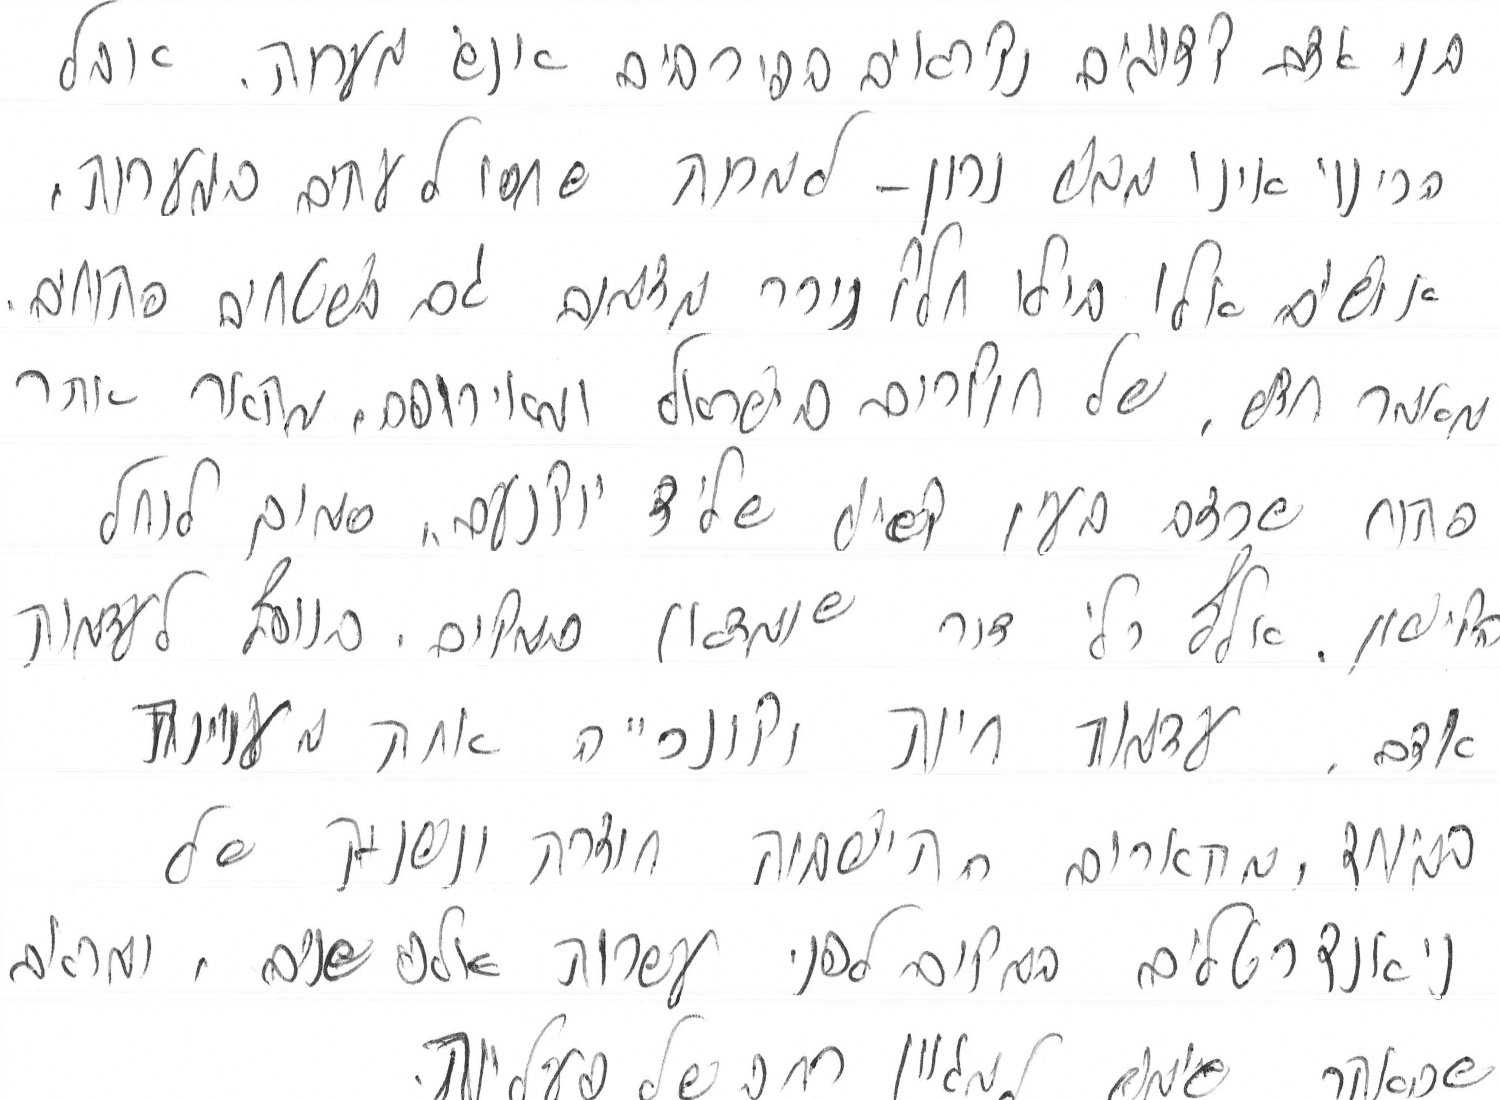 בני אדם קדומים נקראים בפי רבים אנשי מערות. אבל
הכינוי אינו ממש נכון - למרות שחסו לעתים במערות,
אנושים אלו בילו חלק ניכר מזמנם גם בשטחים פתוחים.
מאמר חדש, של חוקרים מישראל ומאירופה, מתאר אתר
פתוח שכזה בעין קשיש שליד יוקנעם, סמוך לנחל
הקישון. אלפי כלי צור שנמצאו במקום, בנוסף לעצמות
אדם, עצמות חיות וקונכייה אחת מעניינת
במיוחד, מתארים התיישבות חוזרת ונשנית של
ניאנדרטלים במקום לפני עשרות אלפי שנים, ומראים
שהאתר שימש למגוון רחב של פעילויות.